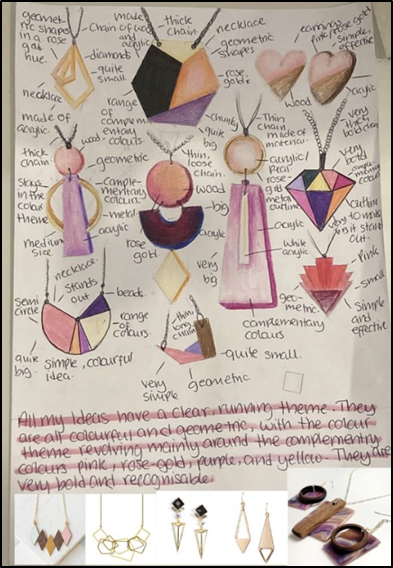 geomet-
ric shapes
in a rose
gold
hue.
made
Chain of wood
and
acrylic
thick
chain.
necklace
geometric
shapes
diamond
quite
small
rose
gold
necklace
made of
acrylic.
range
of
complem
entary
colours
earring
pink/rose gold
simple,
effective
wood
acylic
very
bold
chunky
quite
big
Thin
chain
made of
material.
acrylic/
rose-
gold
metal
outline
thick
chain
wood
geometric
Stays
in the
colour
theme
comple-
mentary
colours.
metal
acrylic
medium
size
thin,
loose
chain.
wood
big
acylic
rose
gold
very
big
acrylic
white
acrylic
geo-
metric.
complementary
colours
very
bold
comple-
mentary
colours
outline
stand
out.
Pink
small
Simple
and
effective
necklace
stands
out
beads
semi
circle
range
of
colours.
quite
big.
simple, colourful
idea.
thin,
long
chain
quite small.
very
simple
geometric
All my ideas have a clear, running theme. They
are all colourful and geometric, with the colour
theme revolving mainly around the complementry
colours pink, rose-gold, purple, and yellow. They are
very bold and recognisable.